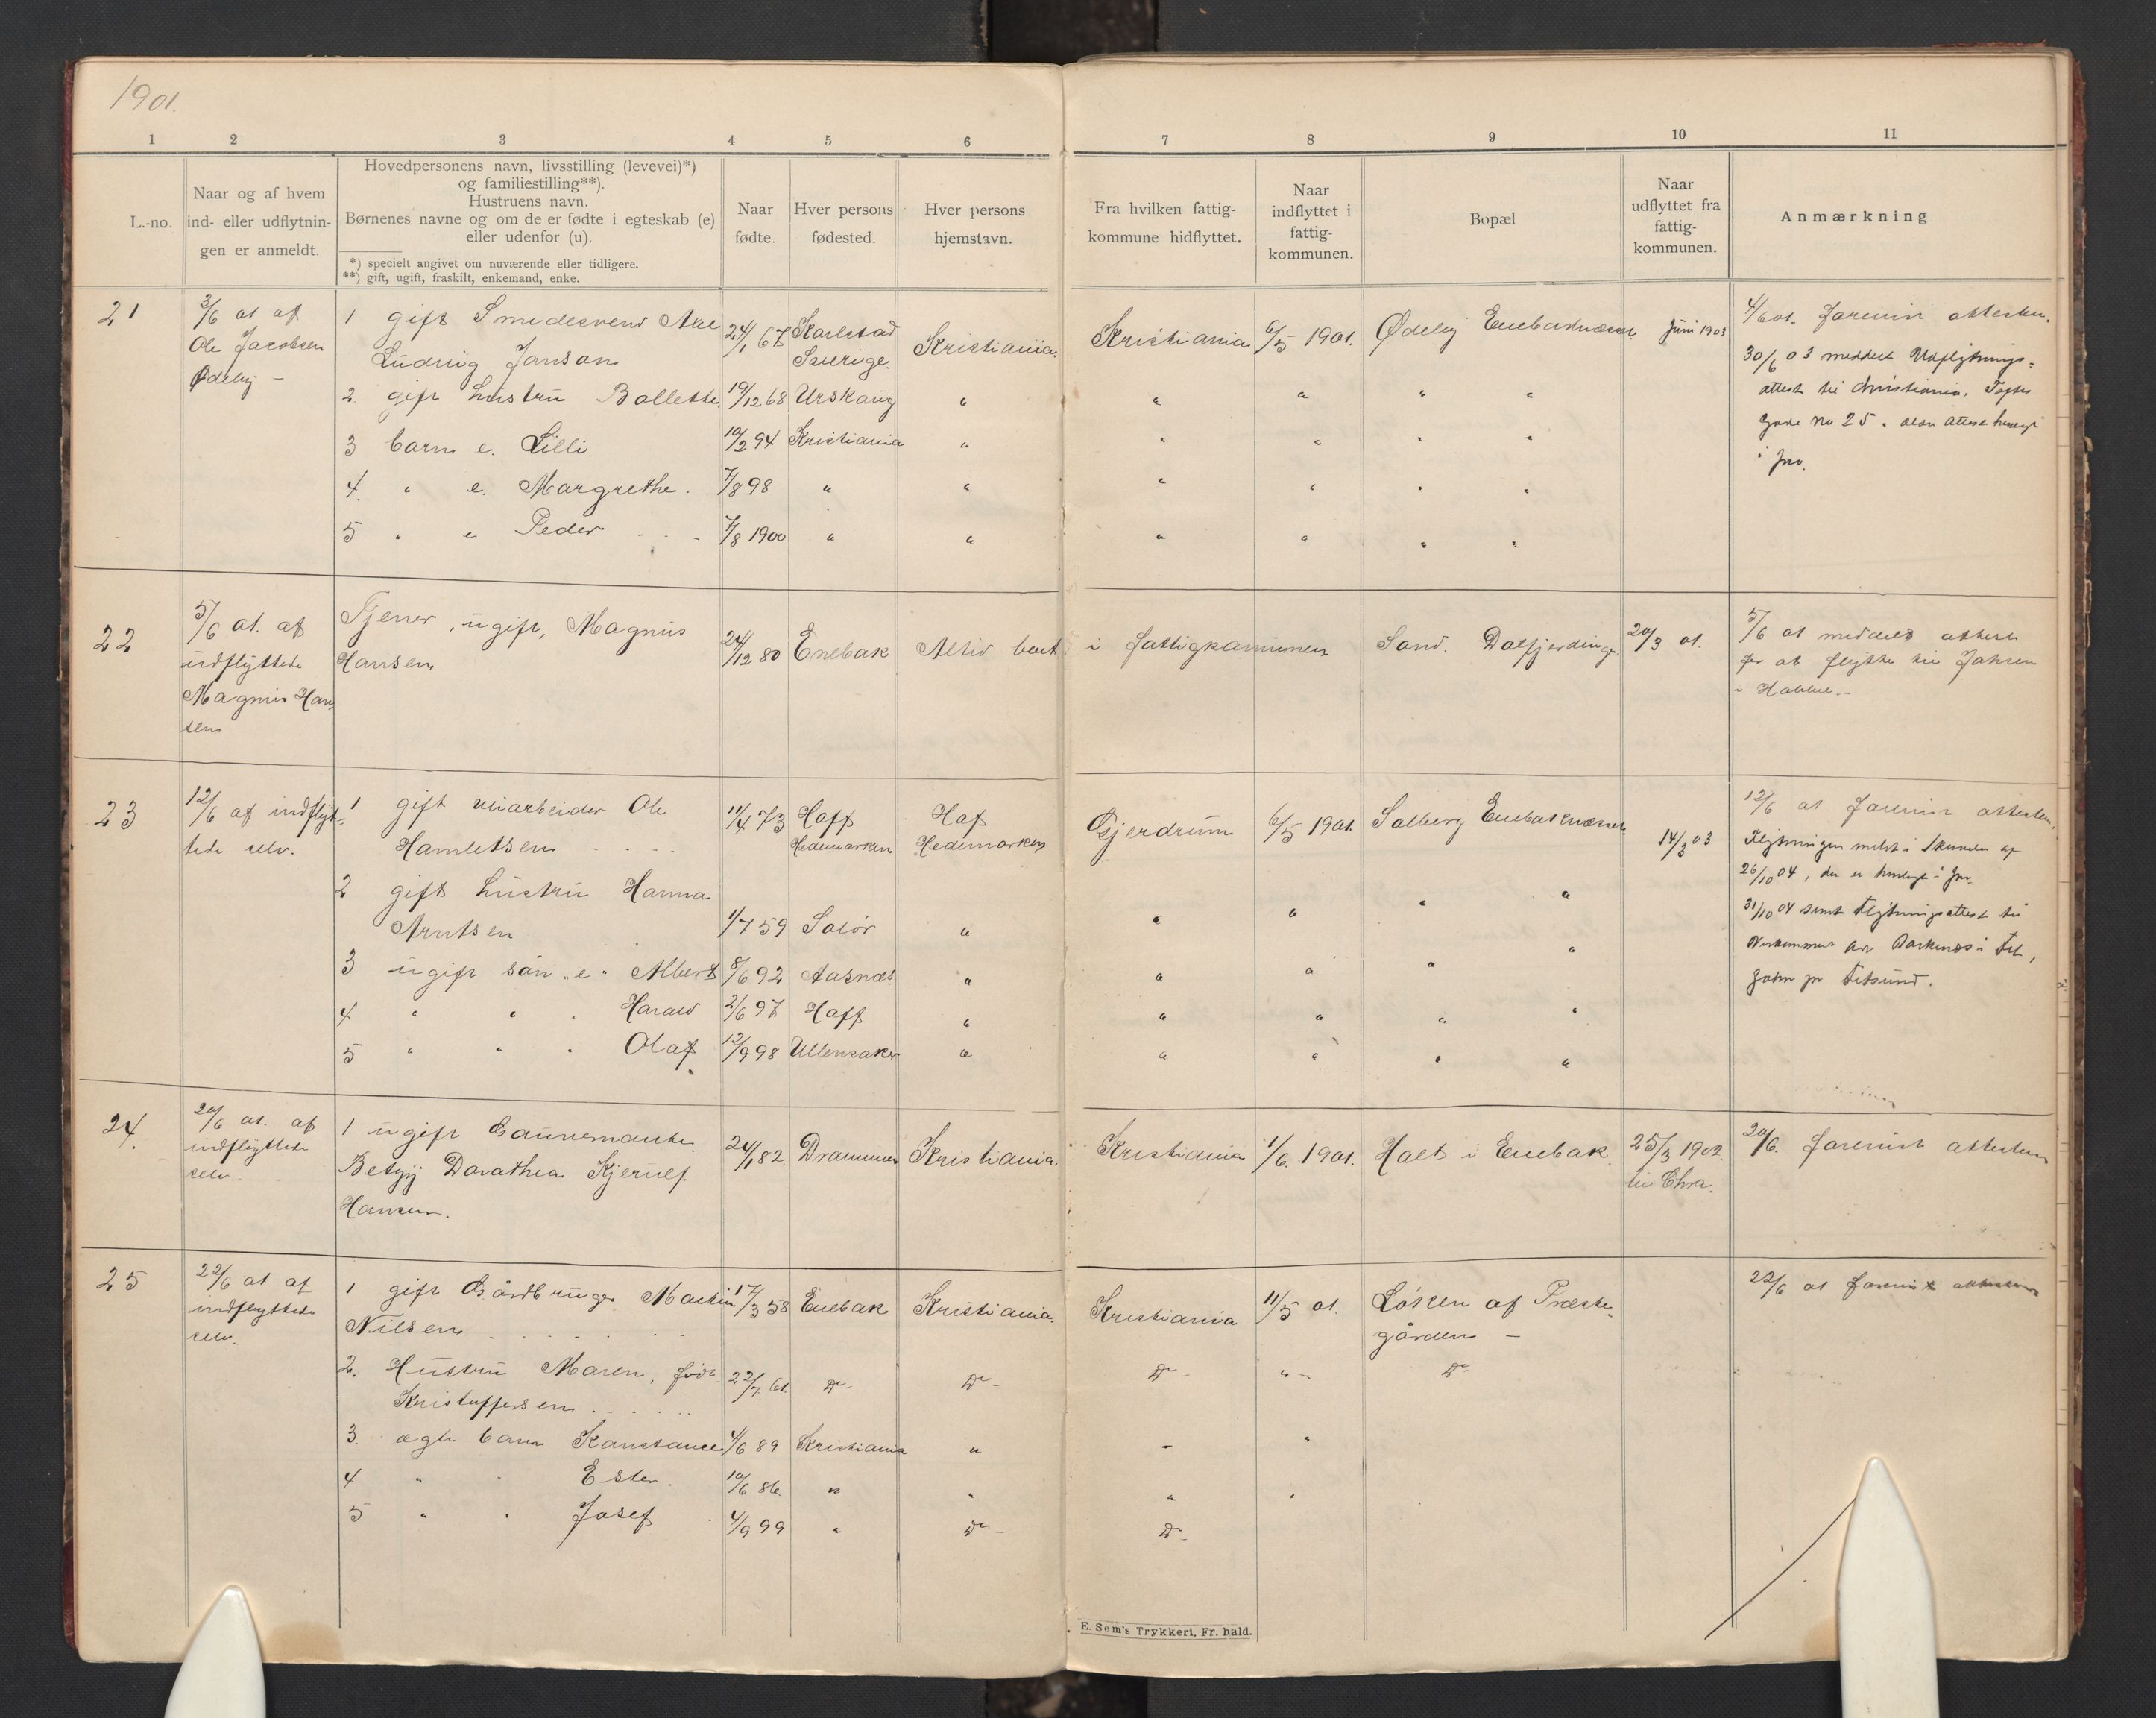 1901.
1 2 3 4 5 6 7 8 9 10 11
L.-no.
Naar og af hvem
ind- eller udflytnin-
gen er anmeldt.
Hovedpersonens navn, livsstilling (levevei)*)
og familiestilling**).
Hustruens navn.
Børnenes navne og om de er fødte i egteskab (e)
eller udenfor (u).
*) specielt angivet om nuværende eller tidligere.
**) gift, ugift, fraskilt, enkemand, enke.
Naar
fødte.
Hver persons
fødested.
Hver persons
hjemstavn.
Fra hvilken fattig-
kommune hidflyttet.
Naar
indflyttet i
fattig-
kommunen.
Bopæl
Naar
udflyttet fra
fattig-
kommunen.
Anmærkning
21
3/6 01 af
Ole Jacobsen
Ødeby –
1 gift Smedesvend
Ludvig Janson
24/1 67
Karlstad
Sverige.
Kristiania
Kristiania
6/5 1901.
Ødeby Enebaknesset
Juni 1903
4/6 01. forevist attesten.
30/6 03 meddelt Udflytnings-
attest til Christiania,
gade No 25.
i jno.
2. gift hustru Bollette 19/12 68 Urskaug " " " " "
3 barn e. Lilli 10/2 94 Kristiania " " " " "
4. " e. Margrethe. 7/8 98 " " " " " "
5 " e Peder 7/8 1900 " " " " " "
22
5/6 01. af
udflyttede
Magnus Han
sen
Tjener, ugift, Magnus
Hansen
24/12 80
Enebak
Altid boet i fattigkommunen
Sand. Dalfjerdingen
20/3 01.
5/6 01 meddelt attest
for at flytte til
i Hobbøl.–
23
12/6 af indflyt-
tede selv.
1 gift arbeider Ole
Hamletsen
11/4 73
Hoff
Hedemarken
Hof
Hedemarken
Gjerdrum
6/5 1901.
Solberg Enebaknesset
14/3 03
12/6 01 forevist attesten.
Flytningen meldt i skrivelse af
26/10 04, der er henlagt i jno.
31/10 04 sendt flytningsattest til
i Fet,
pr Fetsund.
2 gift hustru Hanna
Arntsen
1/7 59 Solør " " " " "
3 ugift søn "e" Albert 8/6 92 Aasnes " " " " "
4 " " " Harald 2/6 97 Hoff " " " " "
5 " " " Olaf 12/9 98 Ullensaker " " " " "
24.
20/6 01. af
indflyttede
selv.
1 ugift
Betzy Dorathea Kjerulf
Hansen.
24/1 82
Drammen
Kristiania.
Kristiania
1/6 1901.
Holt i Enebak
25/3 1902.
til Chra.
20/6. forevist attesten
25
22/6 01 af
indflyttede
selv.
1 gift Gårdbruger Martin
Nilsen
17/3 58
Enebak
Kristiania.
Kristiania
11/5 01.
Løken af Præste-
gården –
22/6 01 forevist attesten
2. Hustru Maren, født
Kristoffersen
22/7 61. Do– Do– Do– "– Do–
3. ægte barn Konstance 4/6 89 Kristiania " – "
4 " " Ester. 10/6 86. " " " "
5 " " Josef 4/9 99 " Do– Do–
E. Sem's Trykkeri, Fr. hald.